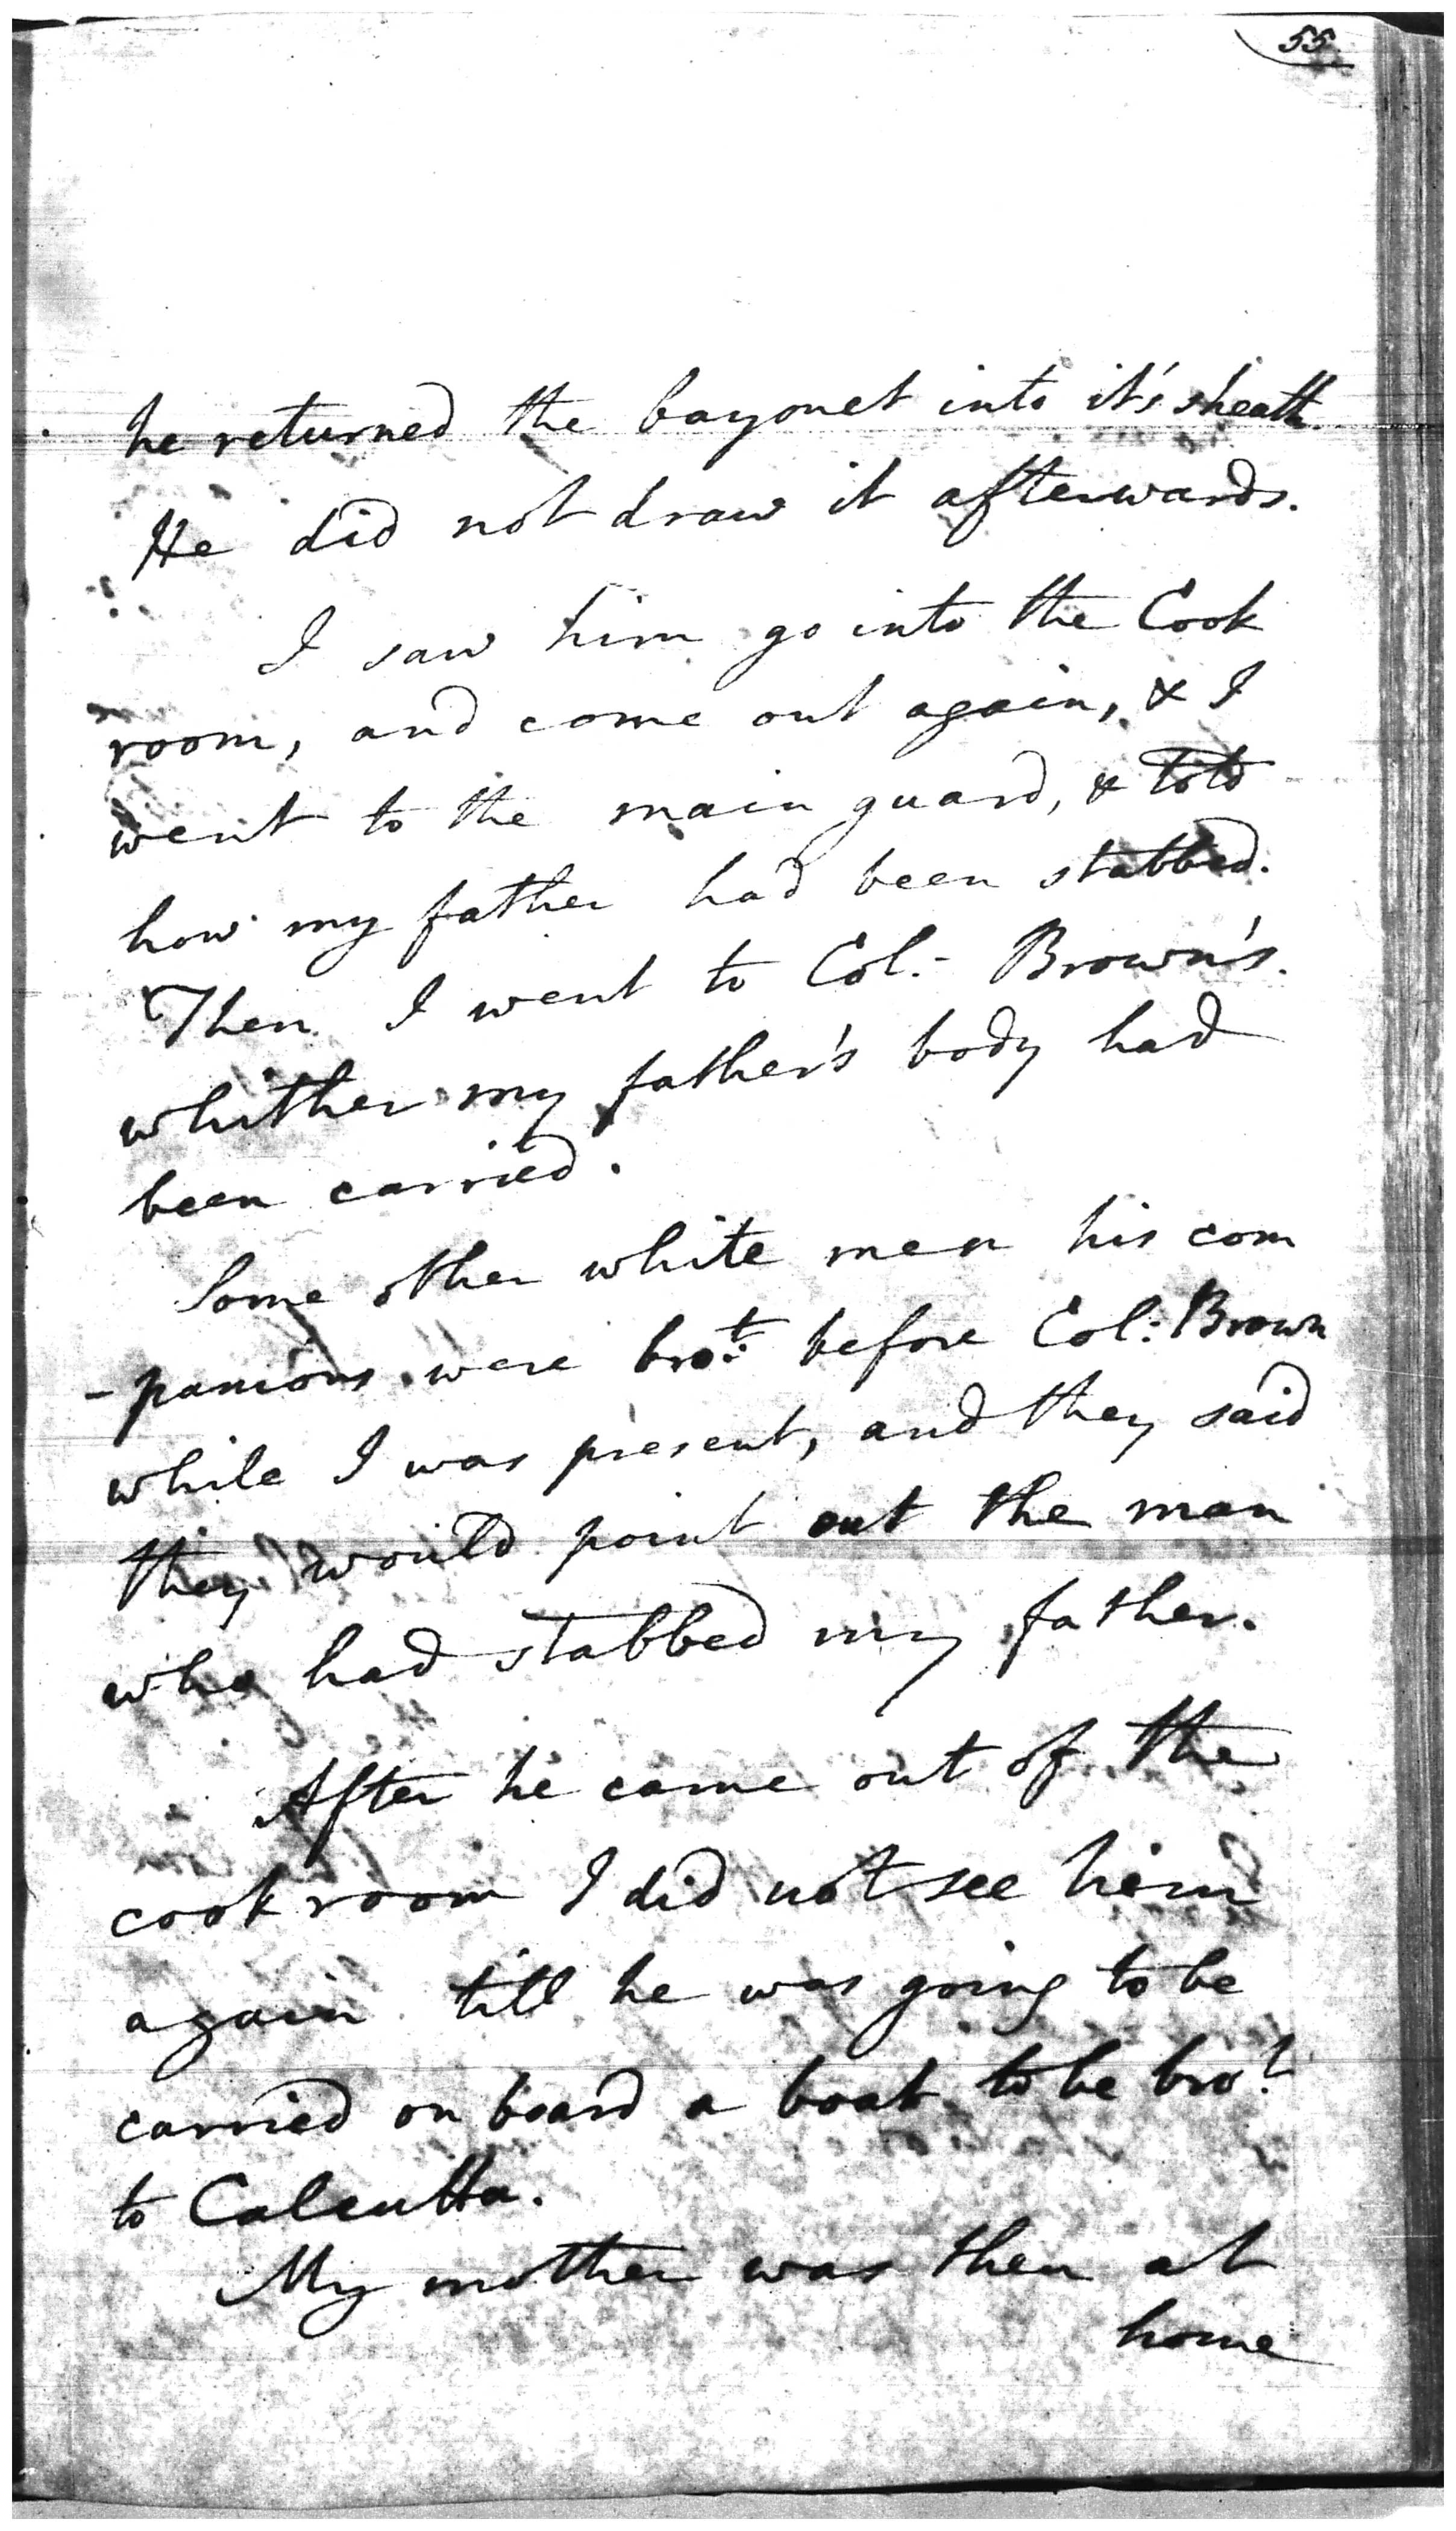 55
he returned the bayonet into it's sheath.
He did not draw it afterwards.
I saw him go into the Cook
room, and come out again, & I
went to the main guard, & told
how my father had been stabbed.
Then I went to Col:- Brown's.
whither my father's body had
been carried.
Some other white men his com
-panions were bro:t before Col: Brown
while I was present, and they said
they would point out the man
who had stabbed my father.
After he came out of the
cook room I did not see him
again till he was going to be
carried on board a boat to be bro:t
to Calcutta.
My mother was then at
home